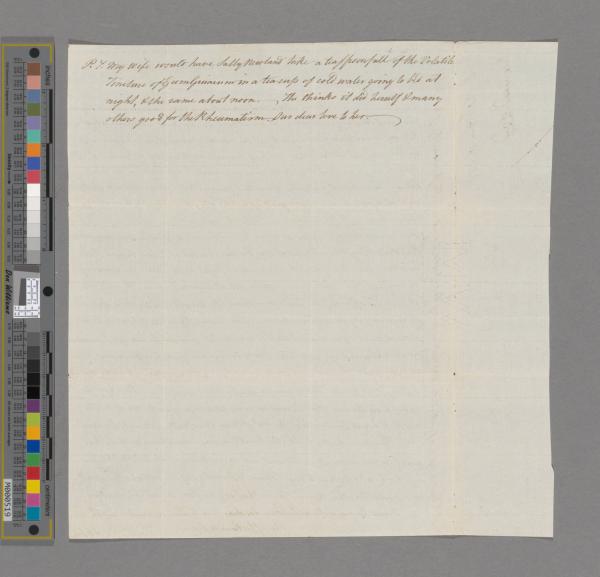 P.S. My Wife would have Sally Newland take a teaspoonfull of the Volatile
Tincture of Gum Guiacum in a tea cup of cold water going to bed at
night, & the same about noon. She thinks it did herself & many
others good for the Rheumatism. Our dear love to her.
inches
centimeters
Don Williams
M000519